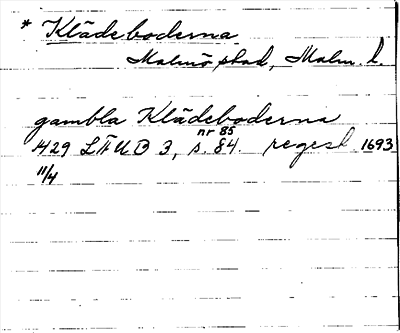 * Klädeboderna
Malmö stad, Malm. l.
gambla Klädeboderna
nr 85
1429 LÄUB 3, s. 84. regest 1693
11/4